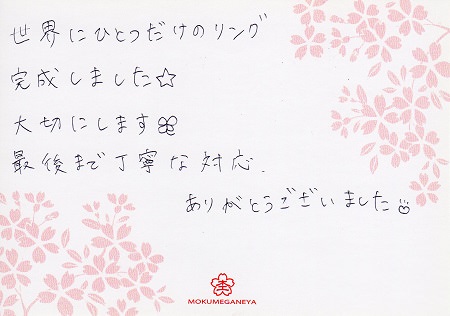 世界にひとつだけのリング
完成しました☆
大切にします
最後まで丁寧な対応.
ありがとうございました
MOKUMEGANEYA